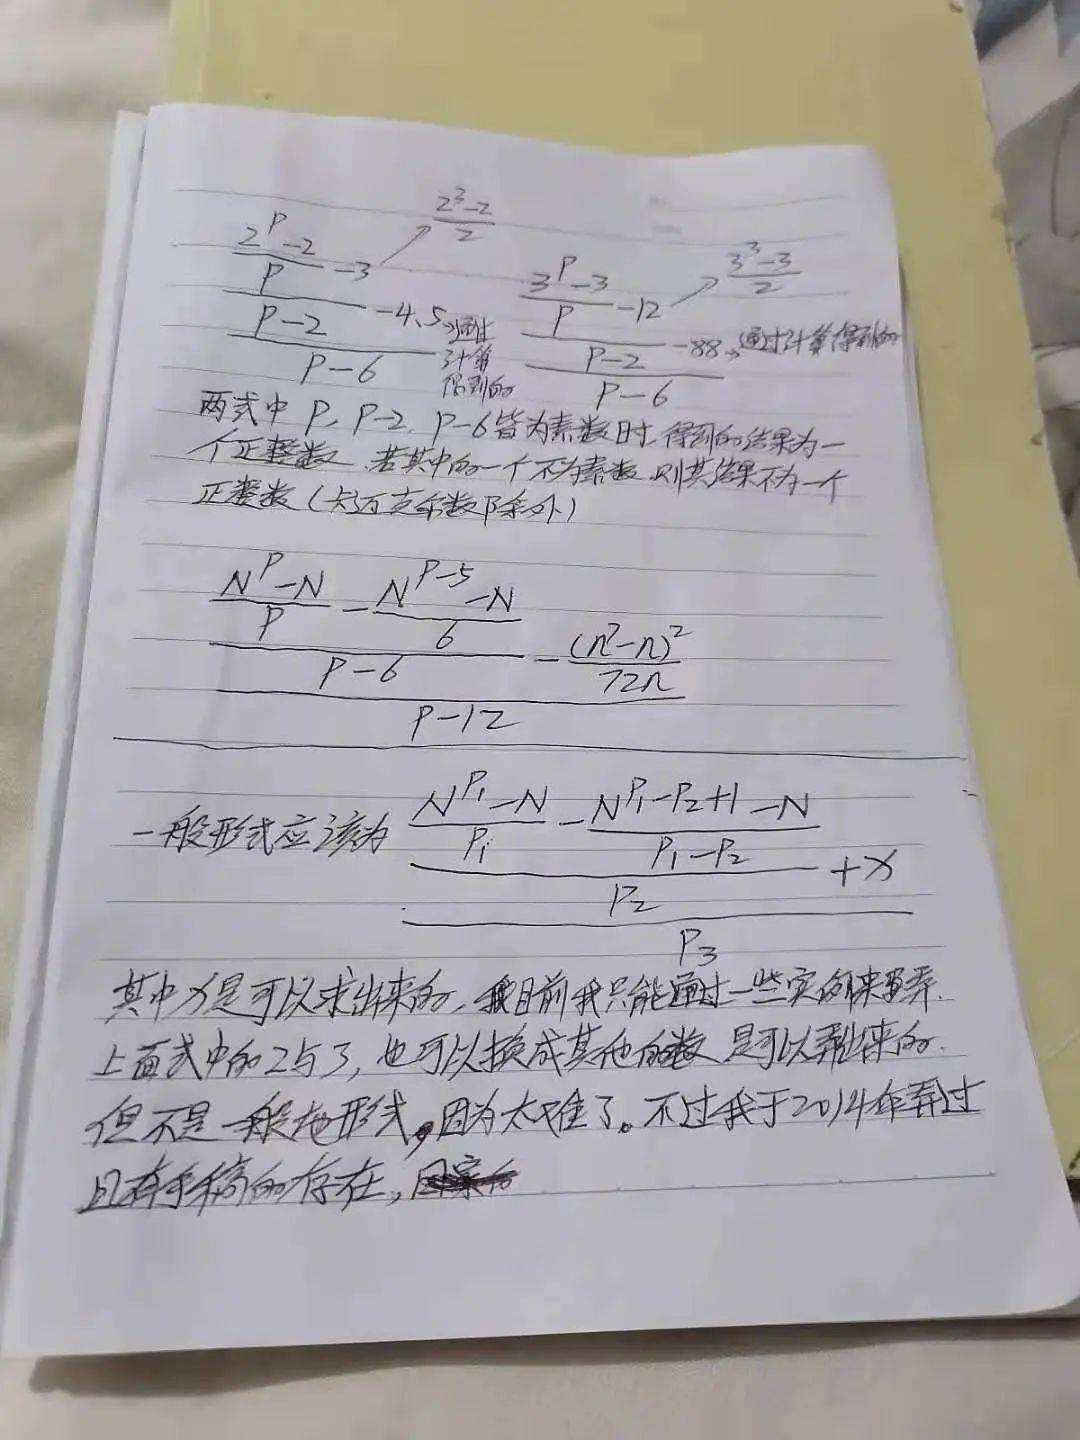 (2^P-2)/P -3 → (2^3-2)/2
P-2 -4.5→通过计算得到的
P-6
(3^P-3)/P -12 → (3^3-3)/2
P-2 -88→通过计算得到的
P-6
两式中P, P-2, P-6皆为素数时,得到的结果为一
个正整数,若其中的一个不为素数,则其结果不为一个
正整数(卡迈克尔数除外)
(N^P-N)/P - (N^{P-5}-N)/6
P-6 - (n^3-n)^2/72n
P-12
一般形式应该为 (N^{P₁}-N)/P₁ - (N^{P₁-P₂+1}-N)/(P₁-P₂)
P₂ +x
P₃
其中x是可以求出来的,目前我只能通过一些实例来弄.
上面式中的2与3,也可以换成其他的数 是可以弄出来的.
但不是一般地形式,因为太难了。不过我于2014年弄过
且有手稿的存在,